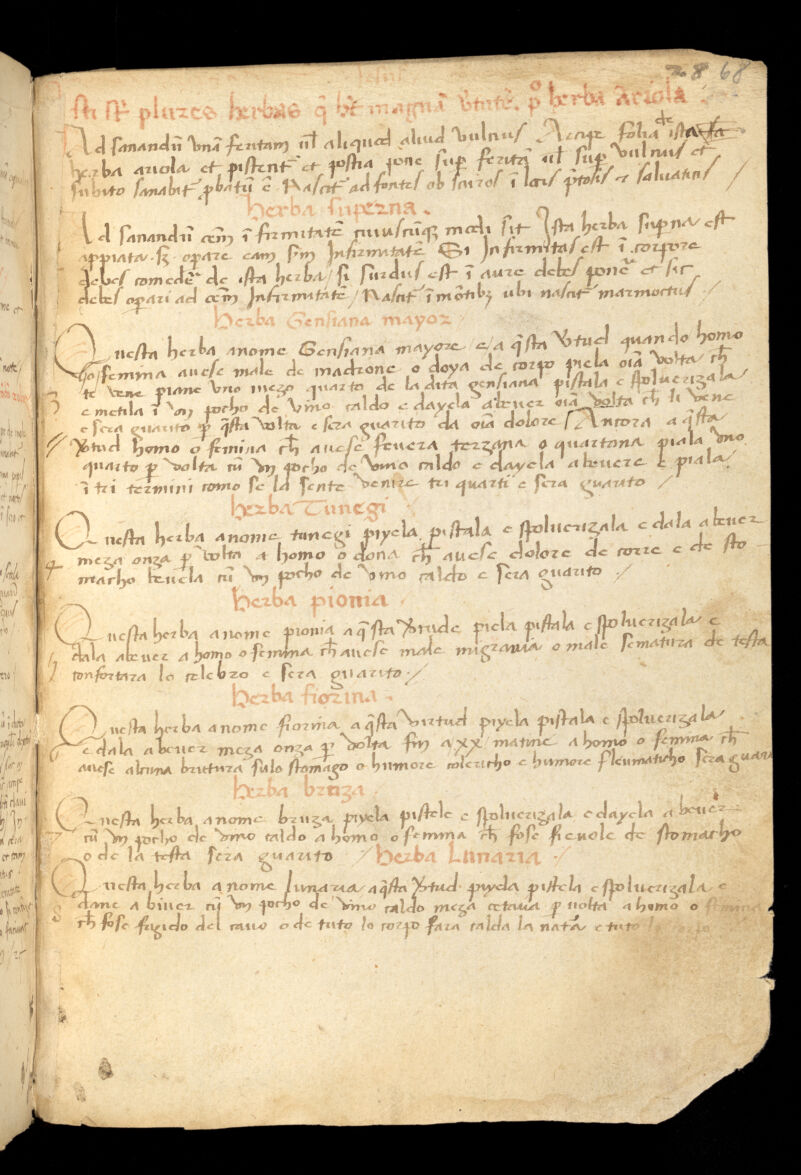 28 68
sti st̄ plures herbas q̄ hn̄t magnā v̄tutē. p̊ herba Ariola
Ad sanandū unā feritam ul̄ aliquod aliud vulnus Accipe folia de ista
herba ariola et pistent̄ et postia pone sup̄ feritā ul̄ sup̄ vulnus et
subito sanabit̄ p̄batū ē Nascit̄ ad fontes ob scuros ī locis et salvaticis /
Herba superna.
Ad sanandū oēm īfirmitatē cuiuscūq̨ modi sit Ista herba sup̄na est
appiata. opare eam sm̄ Infirmitatē Si Infirmitas est ī corpore
debes comedē de ista herba / si surdus est ī aure debes ponē et sic
debes op̄ari ad oēm Infirmitatē / Nascit̄ ī mōtibz̨ ubi nascit̄ marmoctus /
Herba Gensiana mayor
Questa herba a nome Gensiana mayore e a q̄sta v̄tud quando homo
o femma auese male de madrone o doya de corpo piela oīā volta ch̄
te vene piane uno mezo quarto de la dita gensiana pistala e spoluerizala
3 e metila ī un pocho de vino caldo e dayela a beuer oīā volta ch̄ li vene
e sera guarito p̄ q̄sta volta e sera guarito da oīā dolore / Ancora a q̄sta
v̄tud homo o femina ch̄ auese feuera terzana o quartana piala uno
quarto p̄ volta cū un pocho de vino caldo e dayela a beuere e piala
ī tri termini como se la sente venire tri quarti e sera guarito /
herba Tunegi
Questa herba a nome tunegi piyela pistala e spoluerizala e dala a beuer
4 meza onza p̄ volta a homo o dona ch̄ auese dolore de corre e de sto
macho beuela cū un pocho de vino caldo e sera guarito /
Herba pionia
Questa herba a nome pionia a q̄sta v̄tude piela pistala e spoluerizala e
5 dala a beuer a homo o femina ch̄ auese male migrania o male sematura de testa
confortara lo celebro e sera guarito /
Herba fiorina.
Questa herba a nome fiorina a q̄sta virtud piyela pistala e spoluerizala
6 e dala a beuer meza onza p̄ volta fin a xx matine a homo o femma ch̄
auese alcuna brutura sulo stomago o humore colericho e humore fleumaticho sera guari
herba bruza
Questa herba a nome bruza piyela pistele e spoluerizala e dayela a beuer
7 cū un pocho de vino caldo a homo o femma ch̄ fose fieuole de stomacho
o de la testa sera guarito / Herba Lunaria /
Questa herba a nome lunaria a q̄sta v̄tud piyela pistela e spoluerizala e
8 dane a biuer cū un pocho de vino caldo meza octaua p̄ uolta a homo o femina
ch̄ fose frigido del cauo o de tuto lo corpo fara calda la natā e tuto lo corpo